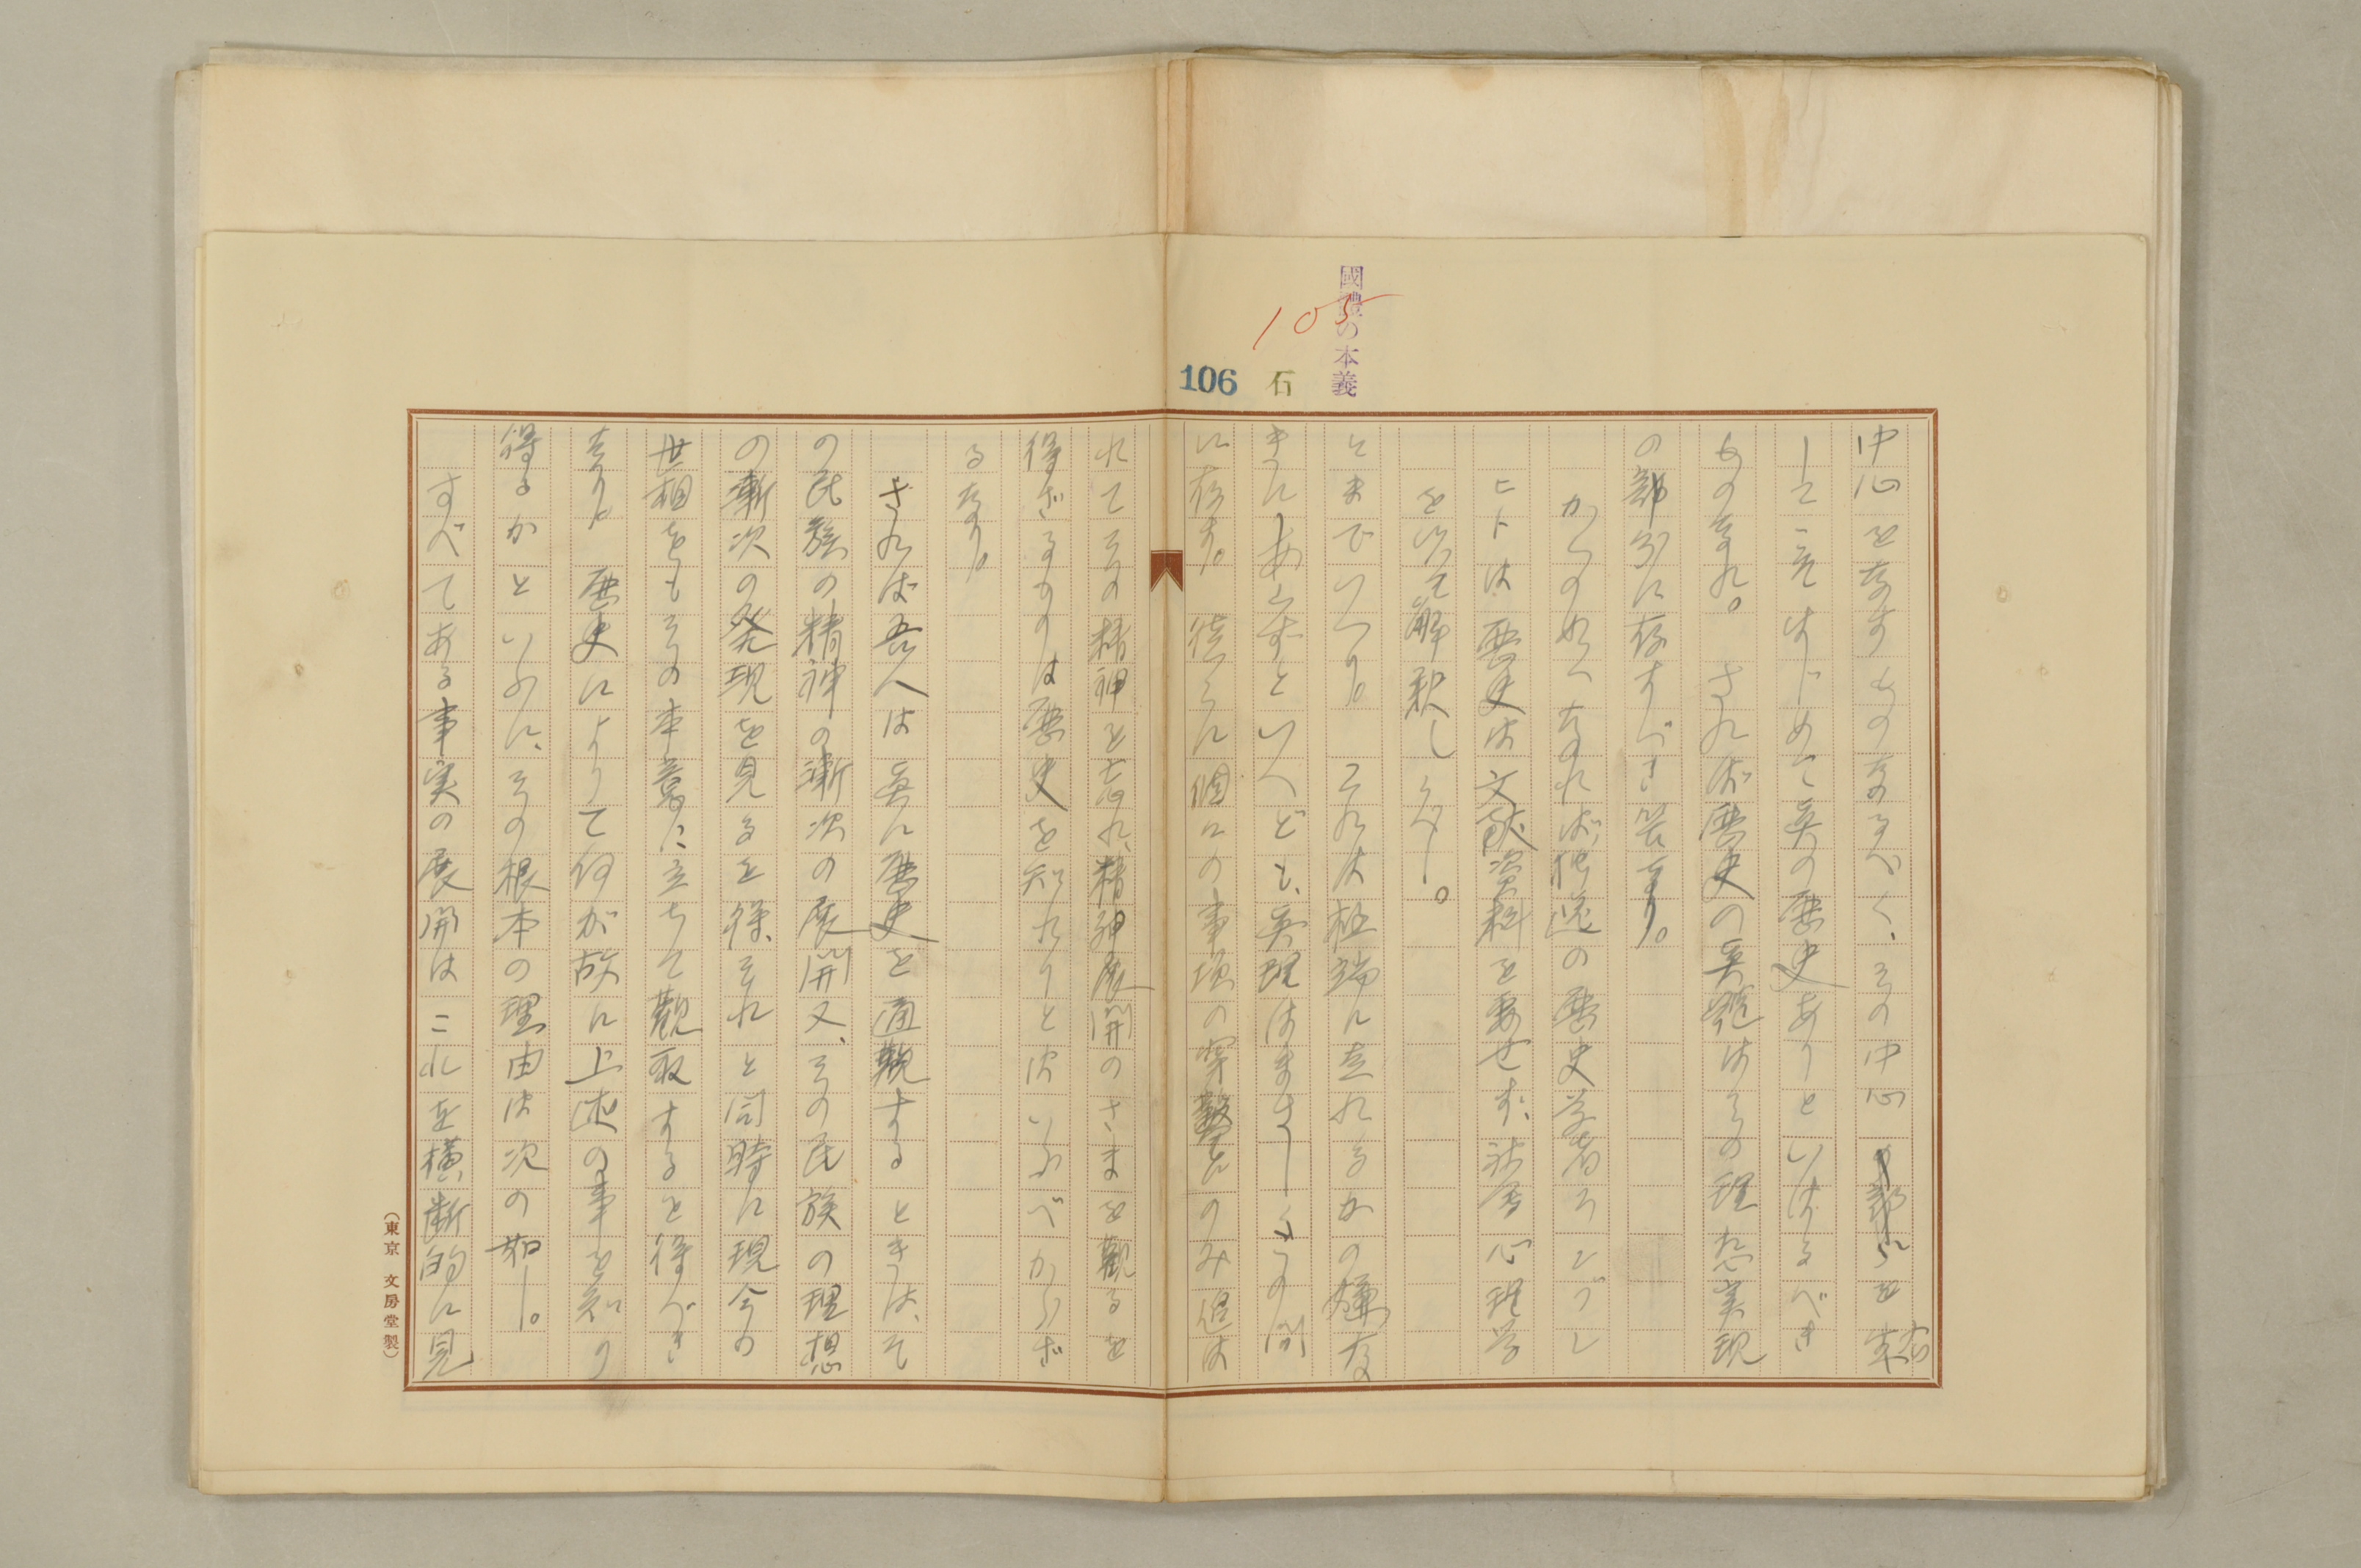 國體の本義
105
106
石
中心をなすものなるべく、その中心を存
してこそはじめて真の歴史ありといはるべき
ものなれ。されば歴史の真髄はその理想実現
の部分に存すべき筈なり。
かくの如くなれば彼の歴史学者
ヒトは歴史は文献資料を要せず、社会心理学
を以て解釈しうべし。
とまでいへり。これは極端に走れるかの嫌な
きにあらずといへども、真理はまさしくその間
に存す。徒らに個々の事項の穿鑿にのみ逐は
れてその精神を忘れ、精神展開のさまを観るを
得ざるものは歴史を知れりとはいふべからざ
るなり。
されば吾人は真に歴史を通観するときは、そ
の民族の精神の漸次の展開又、その民族の理想
の漸次の発現を見るを得、それと同時に現今の
世相をもその本意に立ちて観取するを得べき
なり。歴史によりて何が故に上述の事を知り
得るかといふに、その根本の理由は次の如し。
すべてある事実の展開はこれを横断的に見
(東京 文房堂製)